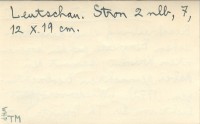 Leutschau. Stron 2 nlb, 7,
12 X 19 cm.
TM